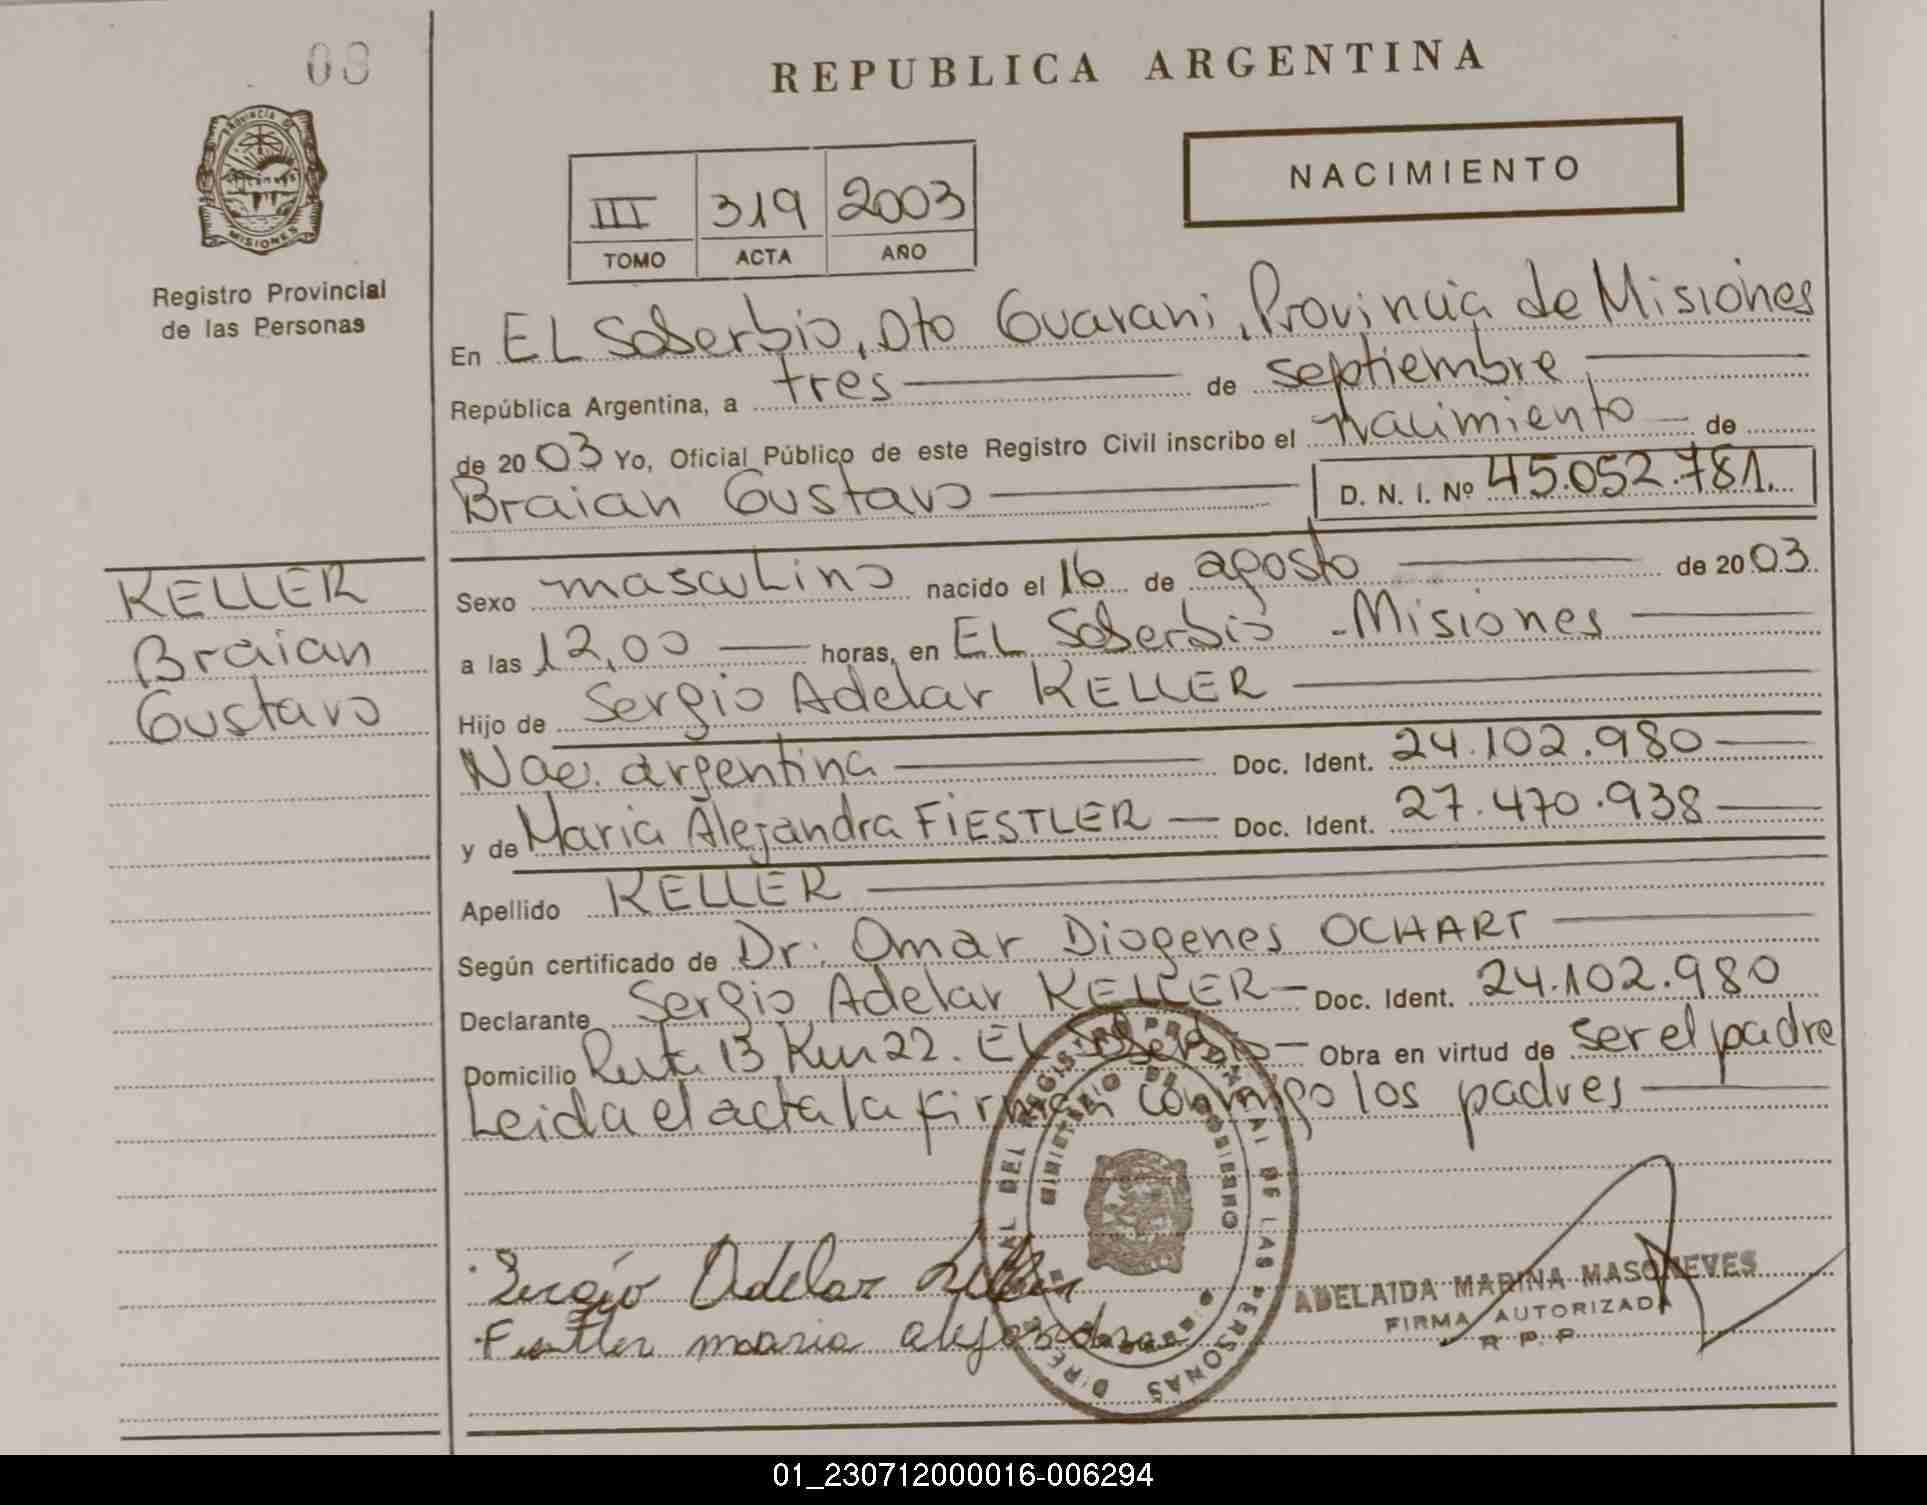 03
REPUBLICA ARGENTINA
PROVINCIA DE
MISIONES
Registro Provincial
de las Personas
III 319 2003
TOMO ACTA AÑO
NACIMIENTO
En EL Soberbio, Dto Guarani, Provincia de Misiones
República Argentina, a tres de septiembre
de 2003 Yo, Oficial Público de este Registro Civil inscribo el nacimiento de
Braian Gustavo D. N. I. Nº 45.052.781.
KELLER
Braian
Gustavo
Sexo masculino nacido el 16 de agosto de 2003
a las 12,00 horas, en EL Soberbio - Misiones
Hijo de Sergio Adelar KELLER
Nac. argentina Doc. Ident. 24.102.980
y de Maria Alejandra FiESTLER Doc. Ident. 27.470.938
Apellido KELLER
Según certificado de Dr. Omar Diogenes OCHART
Declarante Sergio Adelar KELLER Doc. Ident. 24.102.980
Domicilio Ruta 13 Km 22. EL Soberbio Obra en virtud de ser el padre
Leida el acta la firman conmigo los padres
Sergio Adelar Keller
Fiestler maria alejandra
MINISTERIO DE GOBIERNO
ADELAIDA MARINA MASONEVES
FIRMA AUTORIZADA
R. P. P.
01_230712000016-006294